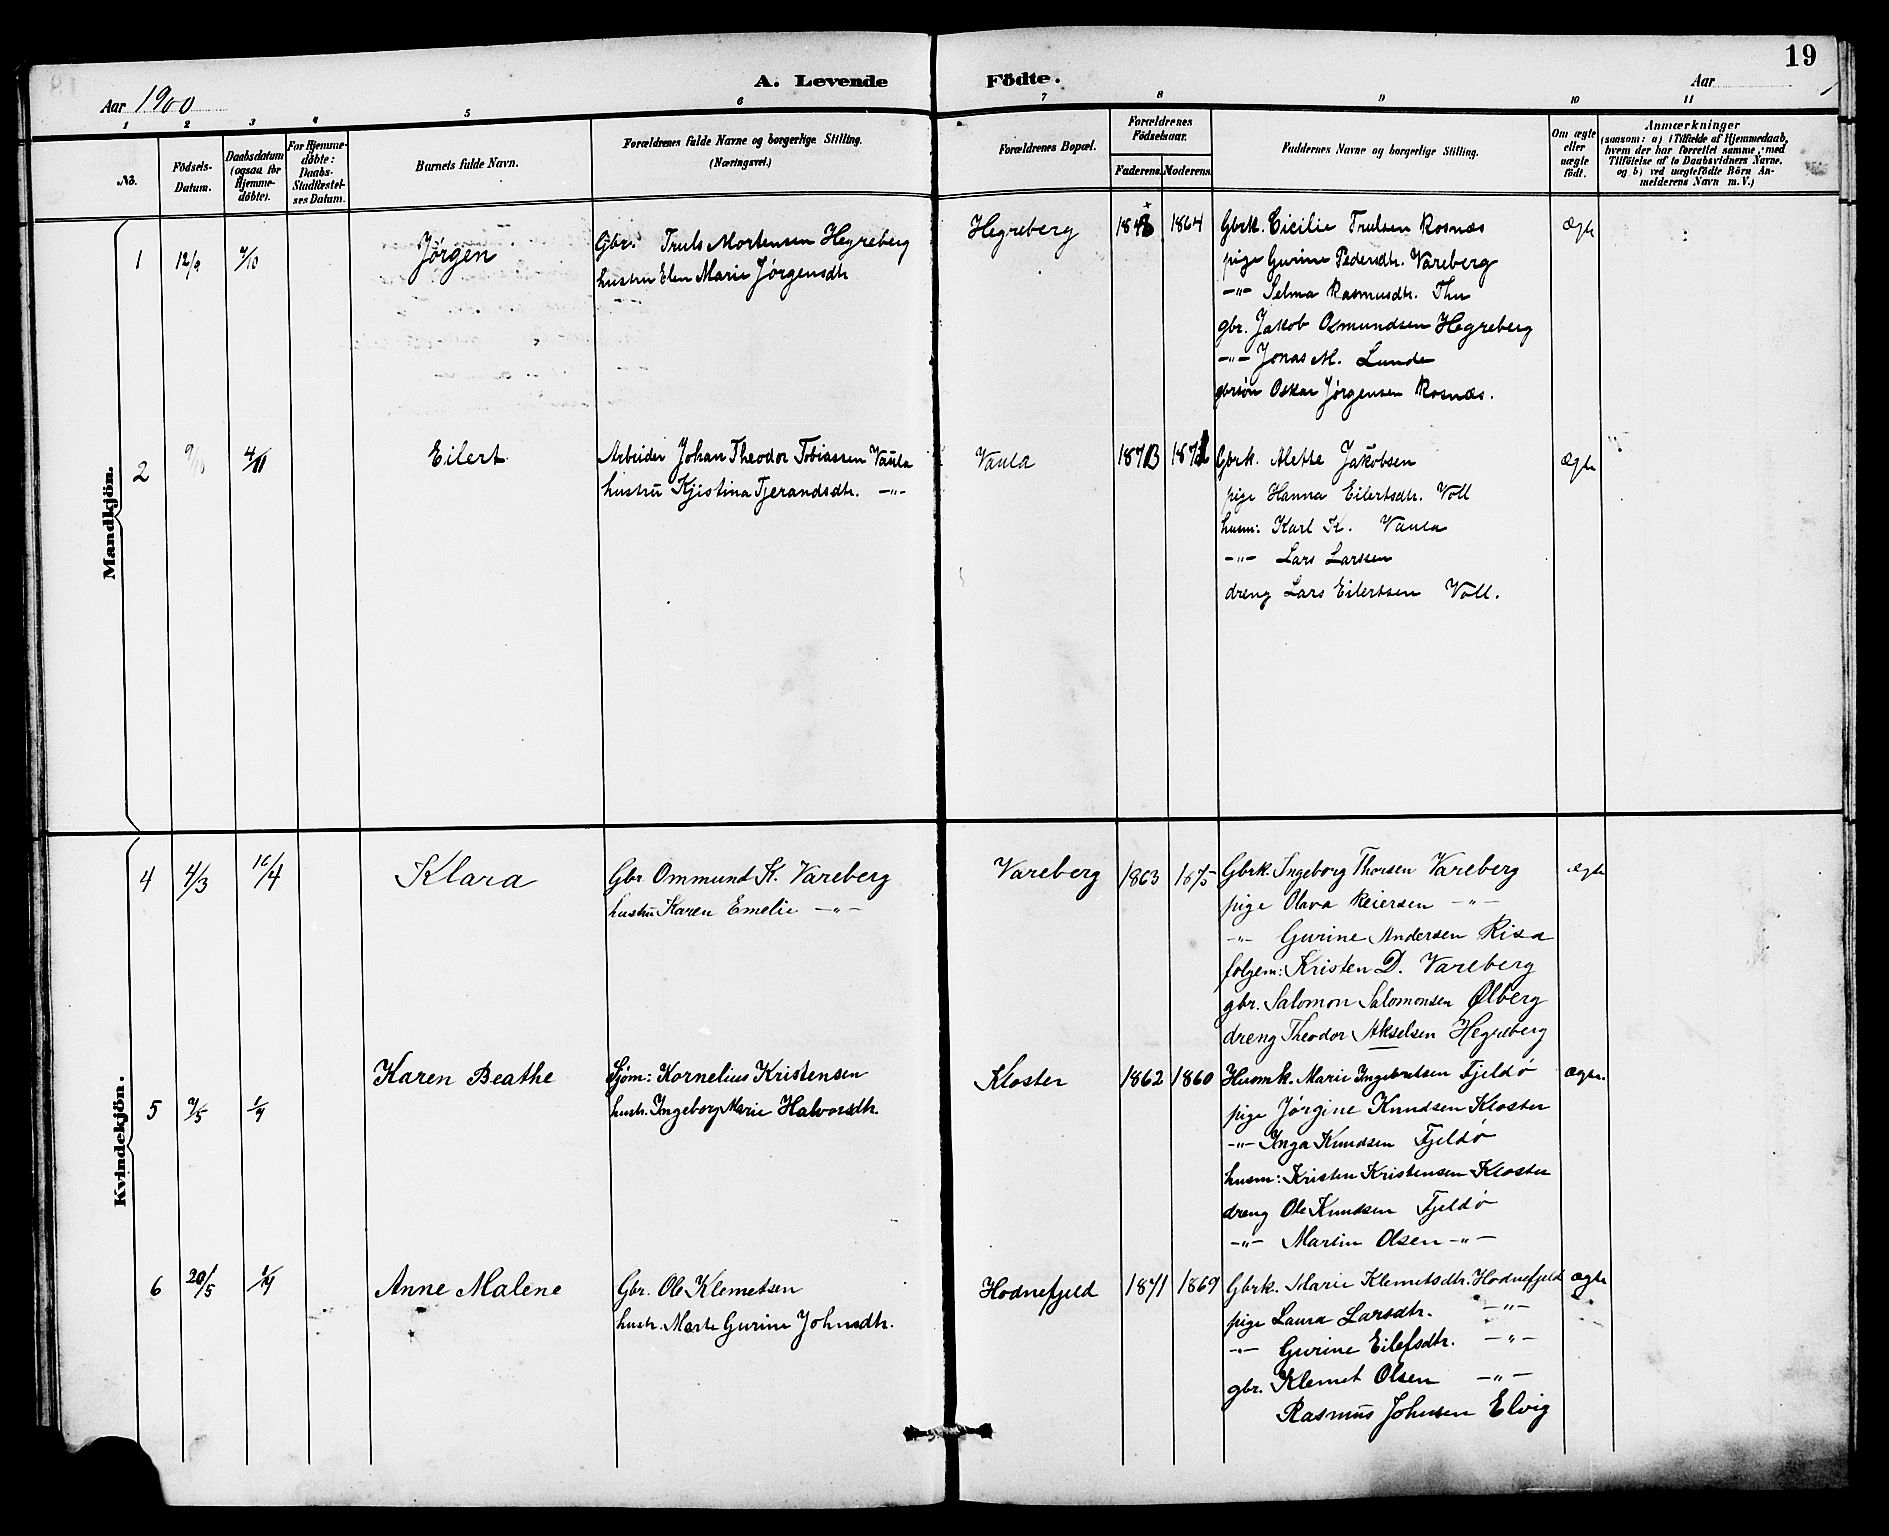 19
A. Levende Födte.
Aar 1900
Aar
1 2 3 4 5 6 7 8 9 10 11
No.
Födsels-Datum.
Daabsdatum (ogsaa for Hjemmedöbte).
For Hjemmedöbte: Daabs-Stadfæstelses Datum.
Barnets fulde Navn.
Forældrenes fulde Navne og borgerlige Stilling. (Næringsvei.)
Forældrenes Bopæl.
Forældrenes Födselsaar.
Faderens. Moderens.
Faddernes Navne og borgerlige Stilling.
Om ægte eller uægte födt.
Anmærkninger
(saasom: a) i Tilfælde af Hjemmedaab, hvem der har forrettet samme, med Tilföielse af to Daabsvidners Navne, og b) ved uægtefödte Börn Anmelderens Navn m. V.)
Mandkjön.
1 12/9 7/10 Jørgen
Gbr. Truls Mortensen Hegreberg
hustru Elen Marie Jørgensdtr
Hegreberg 1864
Gbrk. Cicilie Trulsen Rosnæs
pige Gurine Pedersdtr. Vareberg
-"- Selma Rasmusdtr. Thu
gbr. Jakob Osmundsen Hegreberg
-"- Jonas M. Lunde
gbrsøn Oskar Jørgensen Rosnæs.
Ægte
2 9/10 4/11 Eilert
Arbeider Johan Theodor Tobiassen Vaula
hustru Kjistina Tjerandsdtr. -"-
Vaula
Gbrk. Alette Jakobsen
pige Hanna Eilertsdtr. Voll
husm: Karl K. Vaula
-"- Lars Larssen
dreng Lars Eilertsen Voll.
Ægte
Kvindekjön.
4 4/3 16/4 Klara
Gbr. Ommund K. Vareberg
hustru Karen Emelie -"-
Vareberg 1863 1875
Gbrk. Ingeborg Thorsen Vareberg
pige Olava Reiersen -"-
-"- Gurine Andersen Risa
folgem: Kristen D. Vareberg
gbr. Salomon Salomonsen Ølberg
dreng Theodor Akselsen Hegreberg
Ægte
5 9/5 1/9 Karen Beathe
Sjøm: Kornelius Kristensen
hustr. Ingeborg Marie Halvorsdtr.
Kloster 1862 1860
Husmk. Marie Ingebretsen Fjeldø
pige Jørgine Knudsen Kloster
-"- Inga Knudsen Fjeldø
husm: Kristen Kristensen Kloster
dreng Ole Knudsen Fjeldø
-"- Martin Olsen -"-
Ægte.
6 20/5 Anne Malene
Gbr. Ole Klemetsen
hustr. Marte Gurine Johnsdtr.
Hodnefjeld 1871 1869
Gbrk. Marie Klemetsdtr. Hodnefjeld
pige Laura Larsdtr. -"-
-"- Gurine Eilefsdtr. -"-
gbr. Klemet Olsen -"-
Rasmus Johnsen Elvig
Ægte